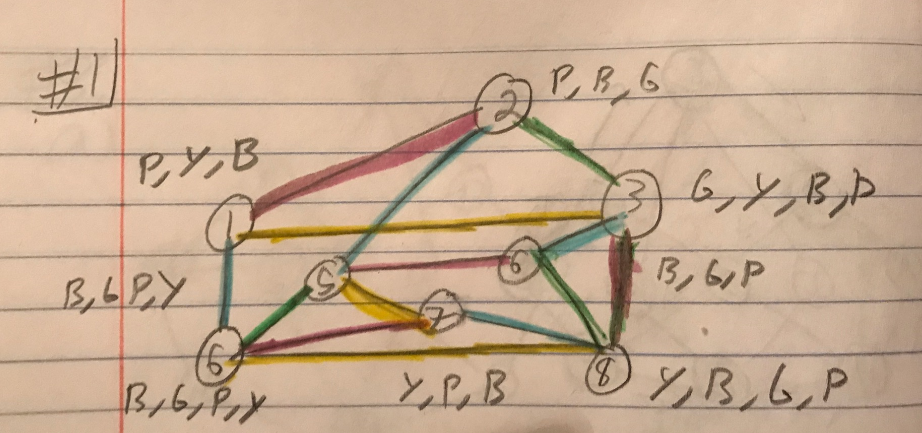 #1
P, B, G
2
P, Y, B
3
G, Y, B, P
1
5
6
B, G, P
B, G P, Y
7
6
8
B, G, P, Y
Y, P, B
Y, B, G, P